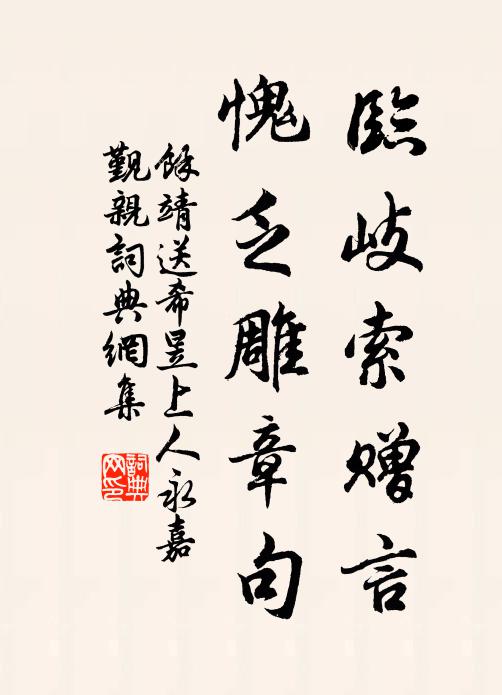 臨歧索贈言
愧乏雕章句
餘靖送希昱上人永嘉
覲親詞典網集
詞典
网印